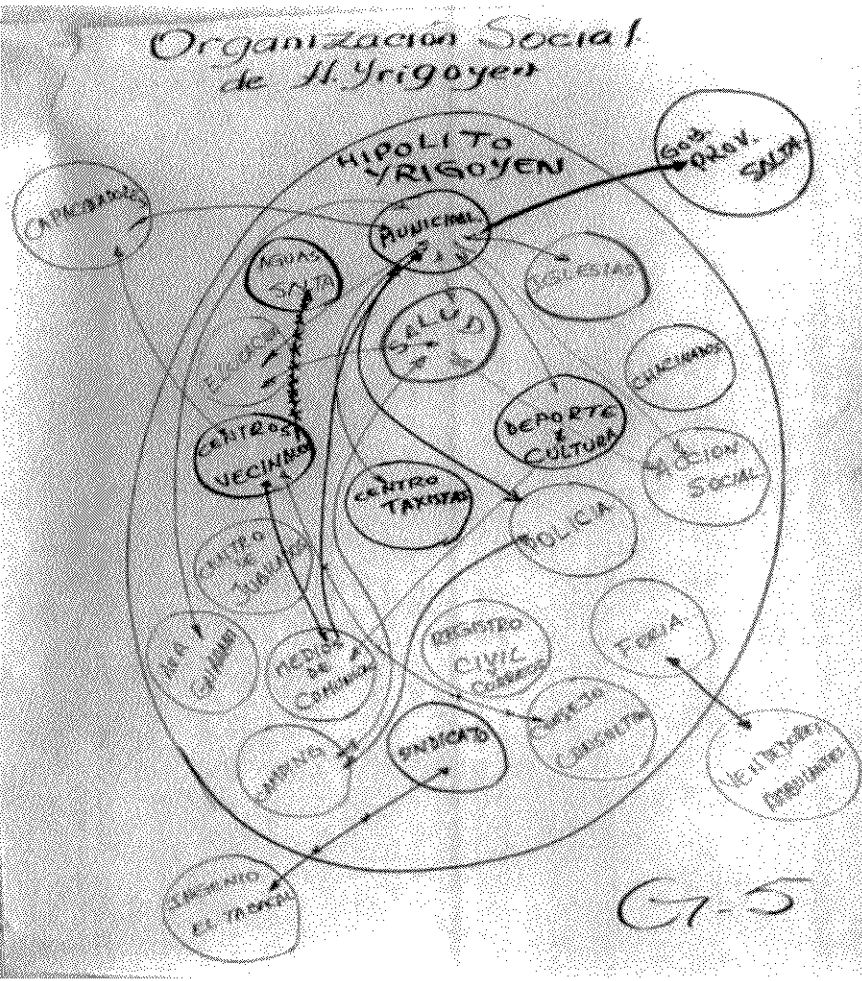 Organización Social
de H. Yrigoyen
HIPOLITO
YRIGOYEN
GOB.
PROV.
SALTA.
CAPACITADORES
MUNICIPAL
AGUAS
SALTA
IGLESIAS
SALUD
EDUCACION
CENTROS
VECINALES
DEPORTE
Y
CULTURA
ACCION
SOCIAL
CENTRO
TAXISTAS
POLICIA
CENTRO
DE
JUBILADOS
MEDIOS
DE
COMUNICAC
REGISTRO
CIVIL
CORREO
FERIA
CAMPING
SINDICATO
CONSEJO
CONSULTIVO
VENDEDORES
AMBULANTES
INGENIO
EL TABACAL
G-5